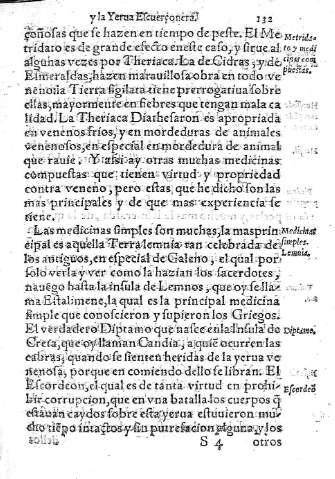 y la Yerua Escuerçonera. 132
çoñosas que se hazen en tiempo de peste. El Me
tridato es de grande efecto en este caso, y sirue al
algunas vezes por Theriaca. La de Cidras, y de
Esmeraldas, hazen marauillosa obra en todo ve
neno. la Tierra sigilata tiene prerrogatiua sobre
ellas, mayormente en fiebres que tengan mala ca
lidad. La Theriaca Diathesaron es apropriada
en venenos frios, y en mordeduras de animales
venenosos, en especial en mordedura de animal
que rauie. Y assi ay otras muchas medicinas
compuestas que tienen virtud y propriedad
contra veneno, pero estas que he dicho son las
mas principales y de que mas experiencia se
tiene.
Las medicinas simples son muchas, la mas prin
cipal es aquella Terra lemnia tan celebrada de
los antiguos, en especial de Galeno, el qual por
solo verla y ver como la hazian los sacerdotes,
nauego hasta la insula de Lemnos, que oy se lla
ma Estalimene, la qual es la principal medicina
simple que conoscieron y supieron los Griegos.
El verdadero Diptamo que nasce en la Insula de
Creta, que oy llaman Candia, a quiẽ ocurren las
cabras, quando se sienten heridas de la yerua ve
nenosa, porque en comiendo dello se libran. El
Escordeon, el qual es de tanta virtud en prohi
bir corrupcion, que en vna batalla los cuerpos q̃
estauan caydos sobre esta yerua estuuieron mu
cho tiẽpo intactos y sin putrefacion alguna, y los
S 4 otros
Metrida
to y medi
cinas com
puestas.
Medicinas
simples.
Lemnia.
Diptamo.
Escordeõ